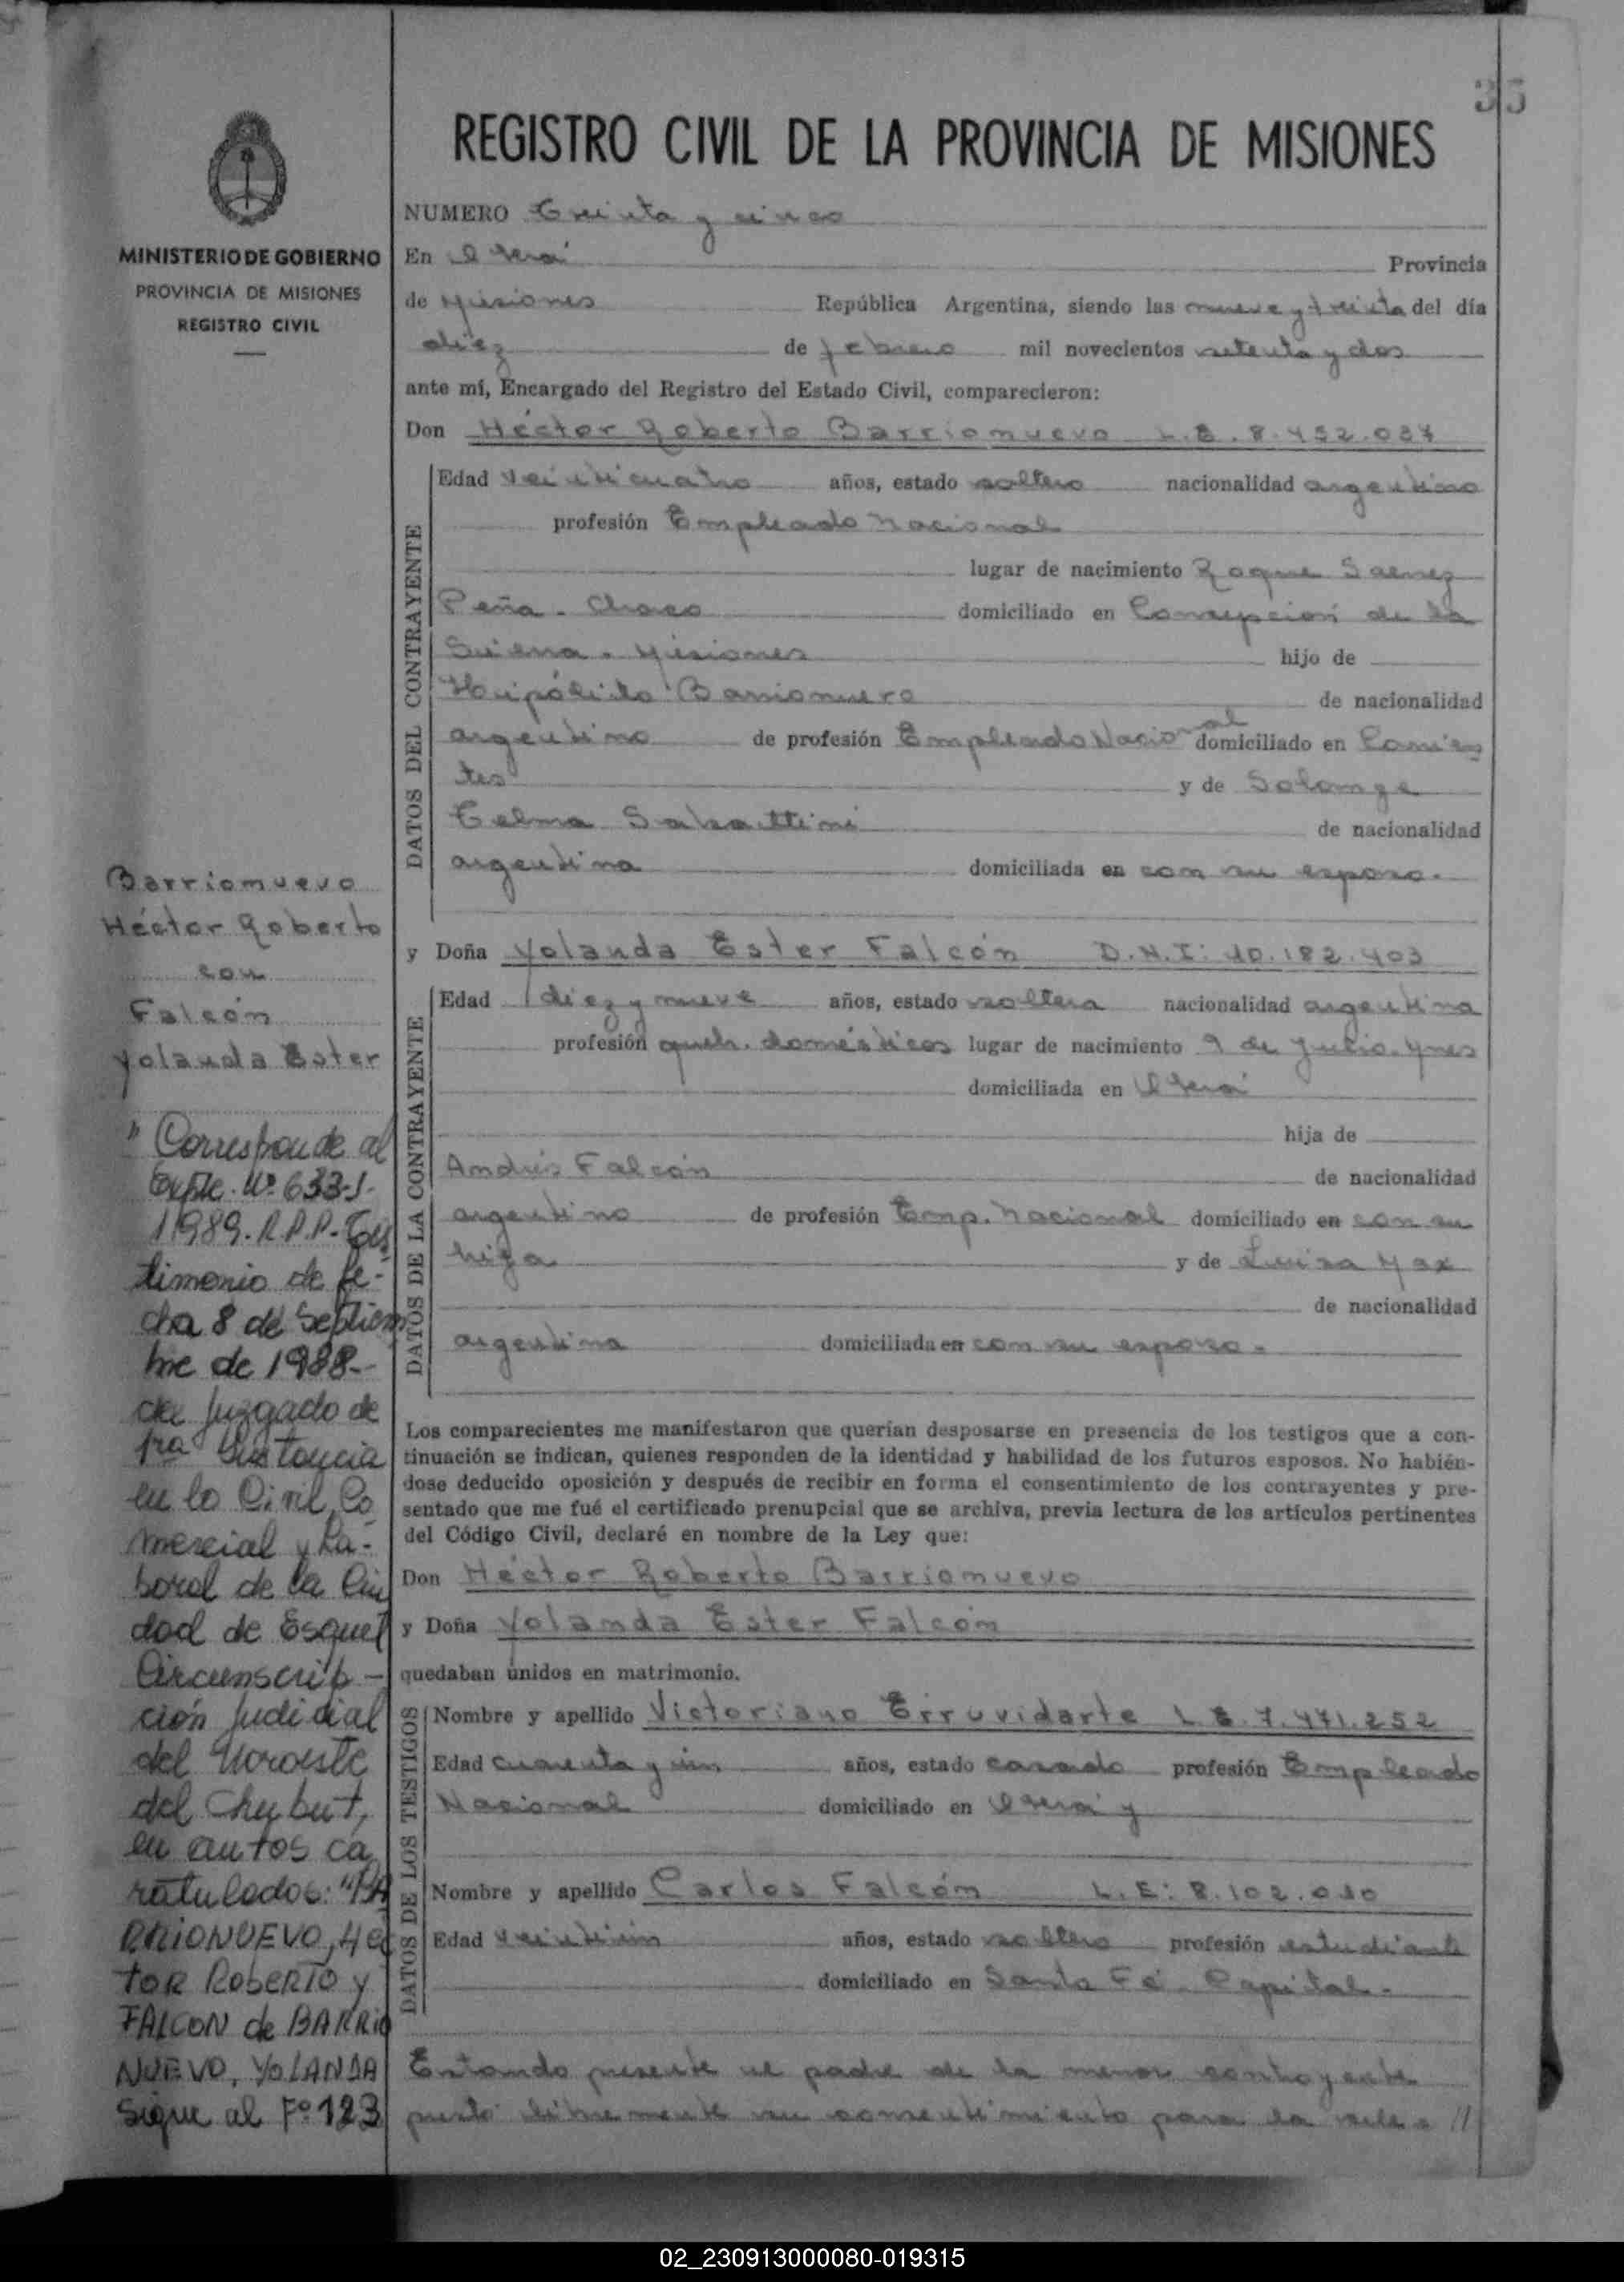 35
REGISTRO CIVIL DE LA PROVINCIA DE MISIONES
MINISTERIO DE GOBIERNO
PROVINCIA DE MISIONES
REGISTRO CIVIL
NUMERO Treinta y cinco
En Oberá Provincia
de Misiones República Argentina, siendo las nueve y treinta del día
diez de febrero mil novecientos setenta y dos
ante mí, Encargado del Registro del Estado Civil, comparecieron:
Don Héctor Roberto Barrionuevo L.E. 8.452.037
DATOS DEL CONTRAYENTE
Edad veinticuatro años, estado soltero nacionalidad argentino
profesión Empleado Nacional
lugar de nacimiento Roque Saenz
Peña - Chaco domiciliado en Concepción de la
Sierra - Misiones hijo de
Huipólito Barrionuevo de nacionalidad
argentino de profesión Empleado Nacional domiciliado en Corrien
tes y de Solange
Telma Sabattini de nacionalidad
argentina domiciliada en con su esposo.
y Doña Yolanda Ester Falcón D.N.I: 10.182.403
DATOS DE LA CONTRAYENTE
Edad diez y nueve años, estado soltera nacionalidad argentina
profesión queh. domésticos lugar de nacimiento 9 de Julio. Mnes
domiciliada en Oberá
hija de
Andrés Falcón de nacionalidad
argentino de profesión Emp. Nacional domiciliado en con su
hija y de Luisa Max
de nacionalidad
argentina domiciliada en con su esposo.
Los comparecientes me manifestaron que querían desposarse en presencia de los testigos que a con-
tinuación se indican, quienes responden de la identidad y habilidad de los futuros esposos. No habién-
dose deducido oposición y después de recibir en forma el consentimiento de los contrayentes y pre-
sentado que me fué el certificado prenupcial que se archiva, previa lectura de los artículos pertinentes
del Código Civil, declaré en nombre de la Ley que:
Don Héctor Roberto Barrionuevo
y Doña Yolanda Ester Falcón
quedaban unidos en matrimonio.
DATOS DE LOS TESTIGOS
Nombre y apellido Victoriano Erruvidarte L.E. 7.471.252
Edad cuarenta y un años, estado casado profesión Empleado
Nacional domiciliado en Oberá y
Nombre y apellido Carlos Falcón L.E: 8.102.010
Edad veintiún años, estado soltero profesión estudiante
domiciliado en Santa Fé - Capital.
Estando presente el padre de la menor contrayente
prestó libremente su consentimiento para la cele = //
Barrionuevo
Héctor Roberto
con
Falcón
Yolanda Ester
" Corresponde al
Expte. Nº 633-J-
1989. R.P.P. Tes
timonio de fe-
cha 8 de Septiem
bre de 1988.-
del Juzgado de
1ra Instancia
en lo Civil, Co
mercial y La-
boral de la Ciu
dad de Esquel
Circunscrip-
ción Judicial
del Noroeste
del Chubut,
en autos ca
ratulados: "BA
RRIONUEVO, HÉC
TOR ROBERTO y
FALCON de BARRIO
NUEVO, YOLANDA
Sigue al Fº 123
02_230913000080-019315